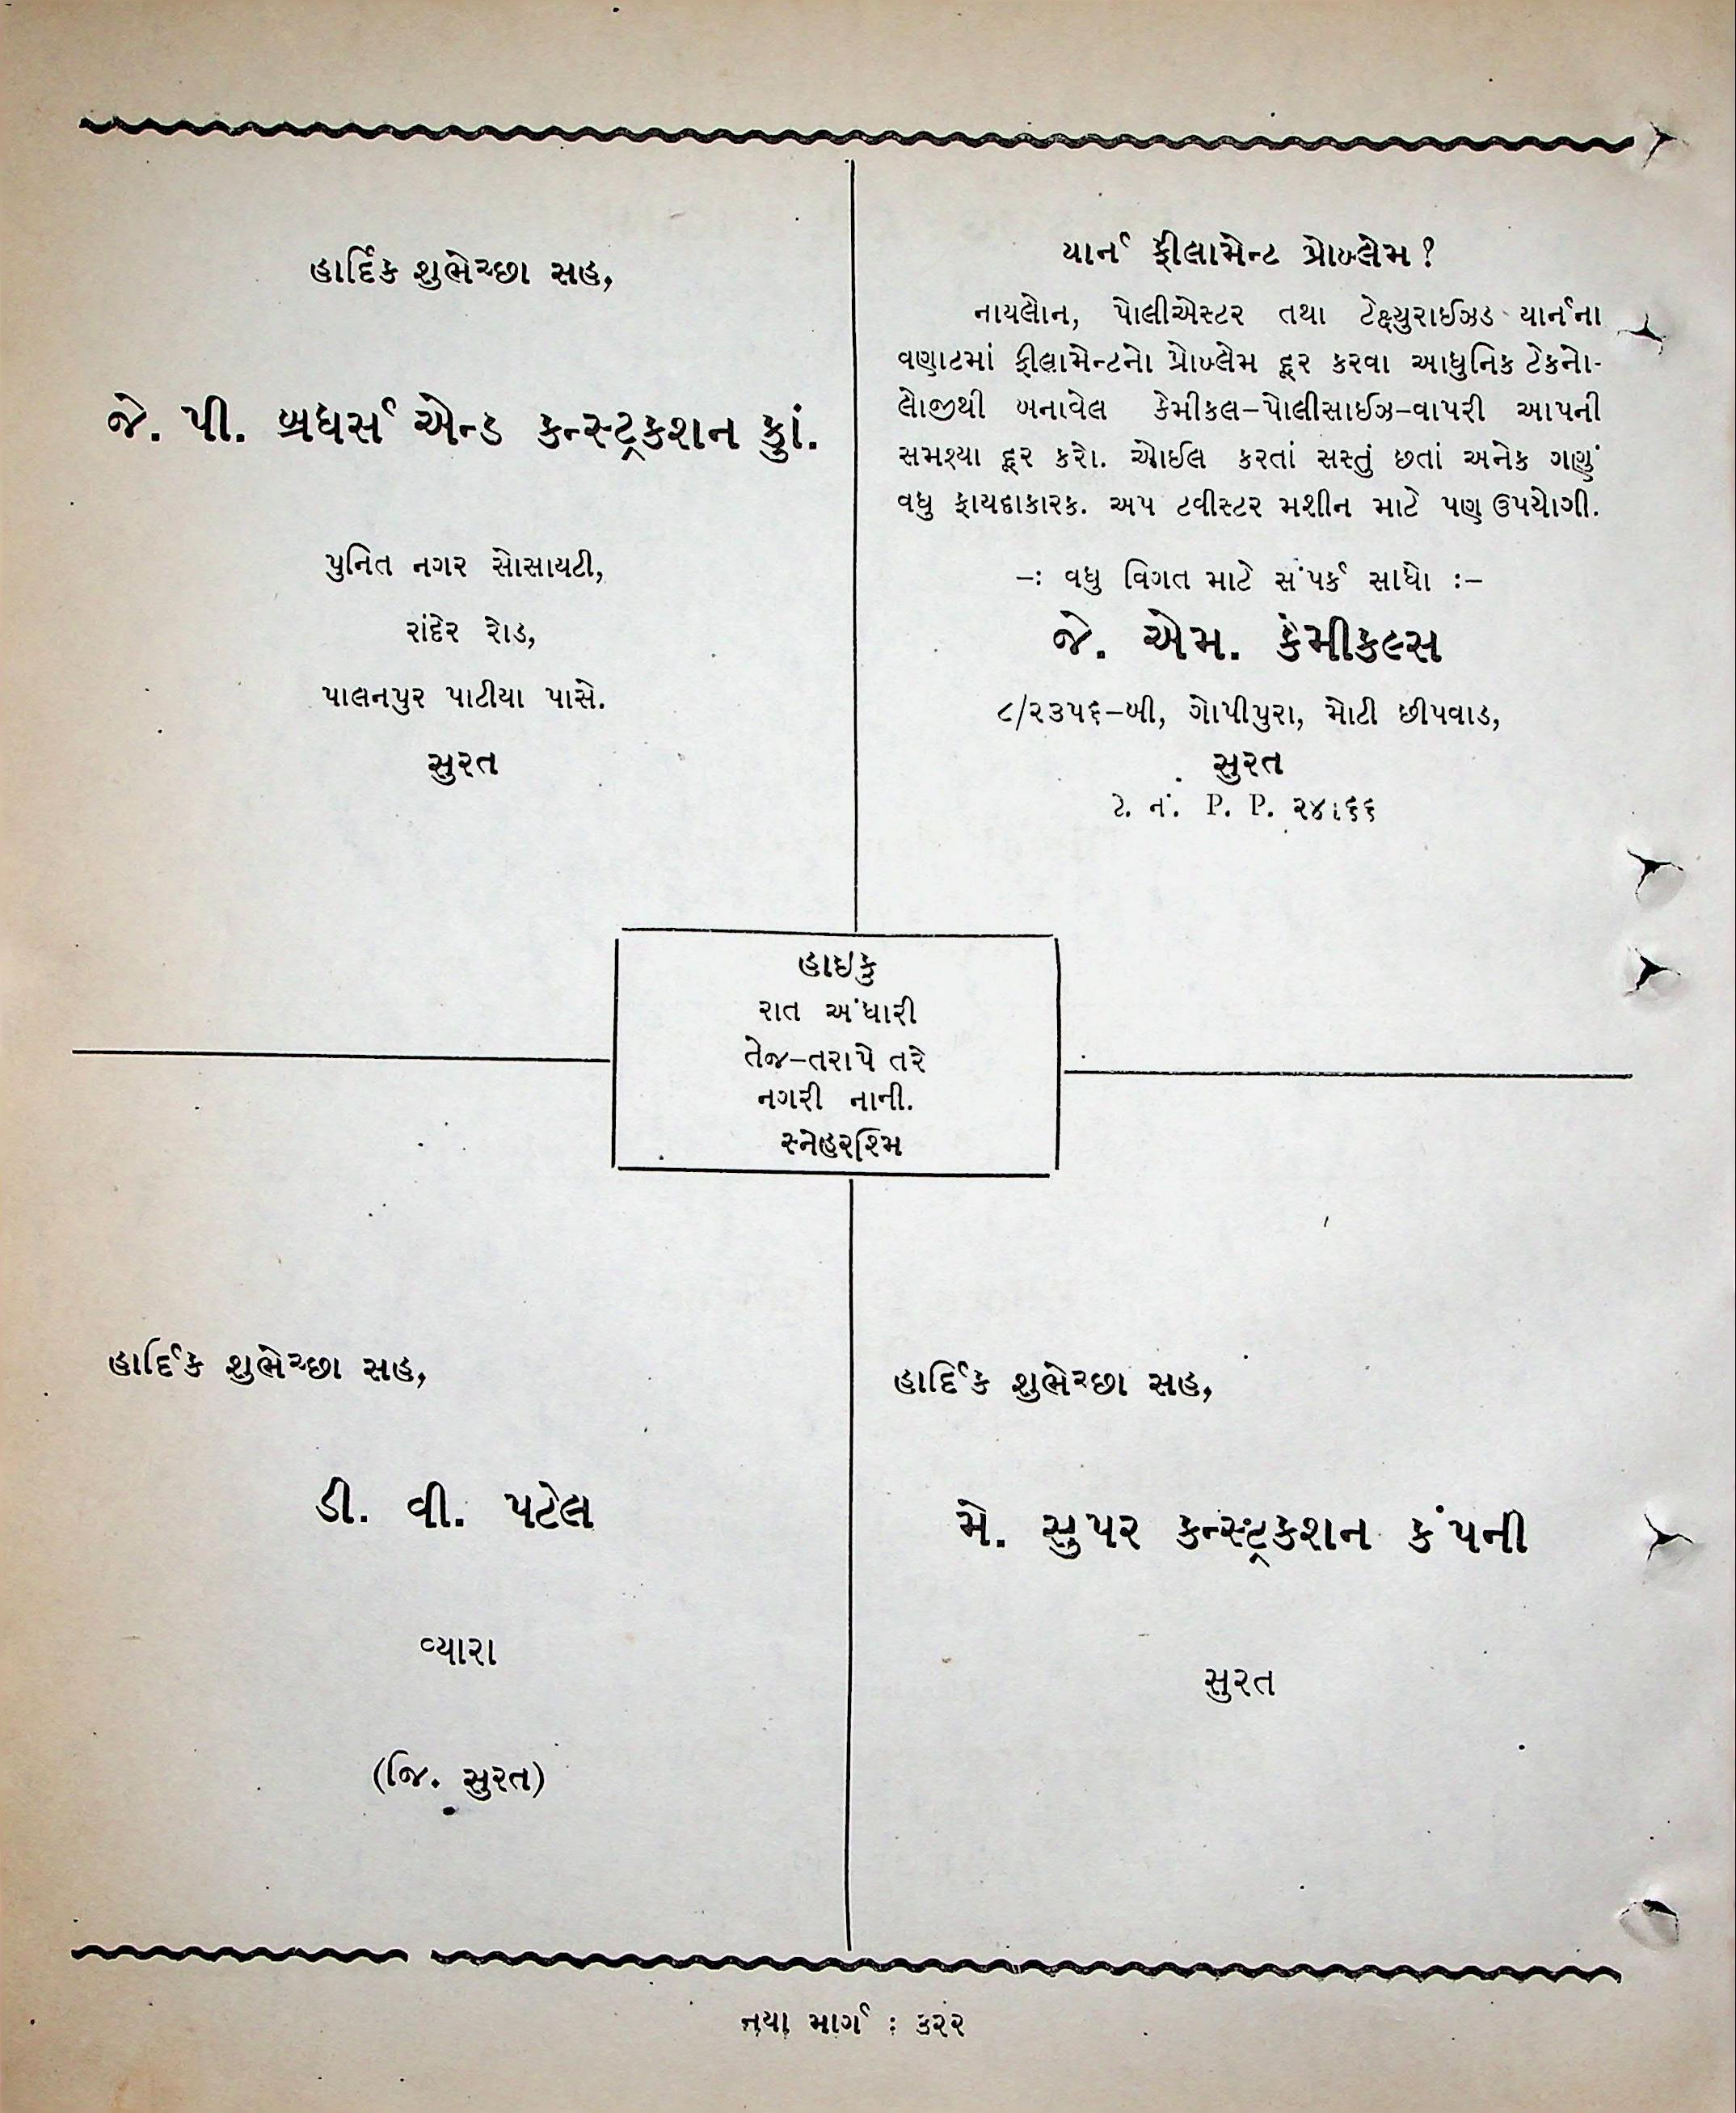 હાર્દિક શુભેચ્છા સહ,
જે. પી. બ્રધર્સ એન્ડ કન્સ્ટ્રકશન કુાં.
પુનિત નગર સોસાયટી,
રાંદેર રોડ,
પાલનપુર પાટીયા પાસે.
સુરત
યાર્ન ફીલામેન્ટ પ્રોબ્લેમ ?
નાયલોન, પોલીએસ્ટર તથા ટેક્ષ્ચુરાઈઝડ યાર્નના
વણાટમાં ફીલામેન્ટનો પ્રોબ્લેમ દૂર કરવા આધુનિક ટેકનો-
લોજીથી બનાવેલ કેમીકલ–પોલીસાઈઝ–વાપરી આપની
સમશ્યા દૂર કરો. ઓઈલ કરતાં સસ્તું છતાં અનેક ગણું
વધુ ફાયદાકારક. અપ ટવીસ્ટર મશીન માટે પણ ઉપયોગી.
–: વધુ વિગત માટે સંપર્ક સાધો :–
જે. એમ. કેમીકલ્સ
૮/૨૩૫૬–બી, ગોપીપુરા, મોટી છીપવાડ,
સુરત
ટે. નં. P. P. ૨૪૧૬૬
હાઇકુ
રાત અંધારી
તેજ–તરાપે તરે
નગરી નાની.
સ્નેહરશ્મિ
હાર્દિક શુભેચ્છા સહ,
ડી. વી. પટેલ
વ્યારા
(જિ. સુરત)
હાર્દિક શુભેચ્છા સહ,
મે. સુપર કન્સ્ટ્રકશન કંપની
સુરત
નયા માર્ગ : ક૨૨